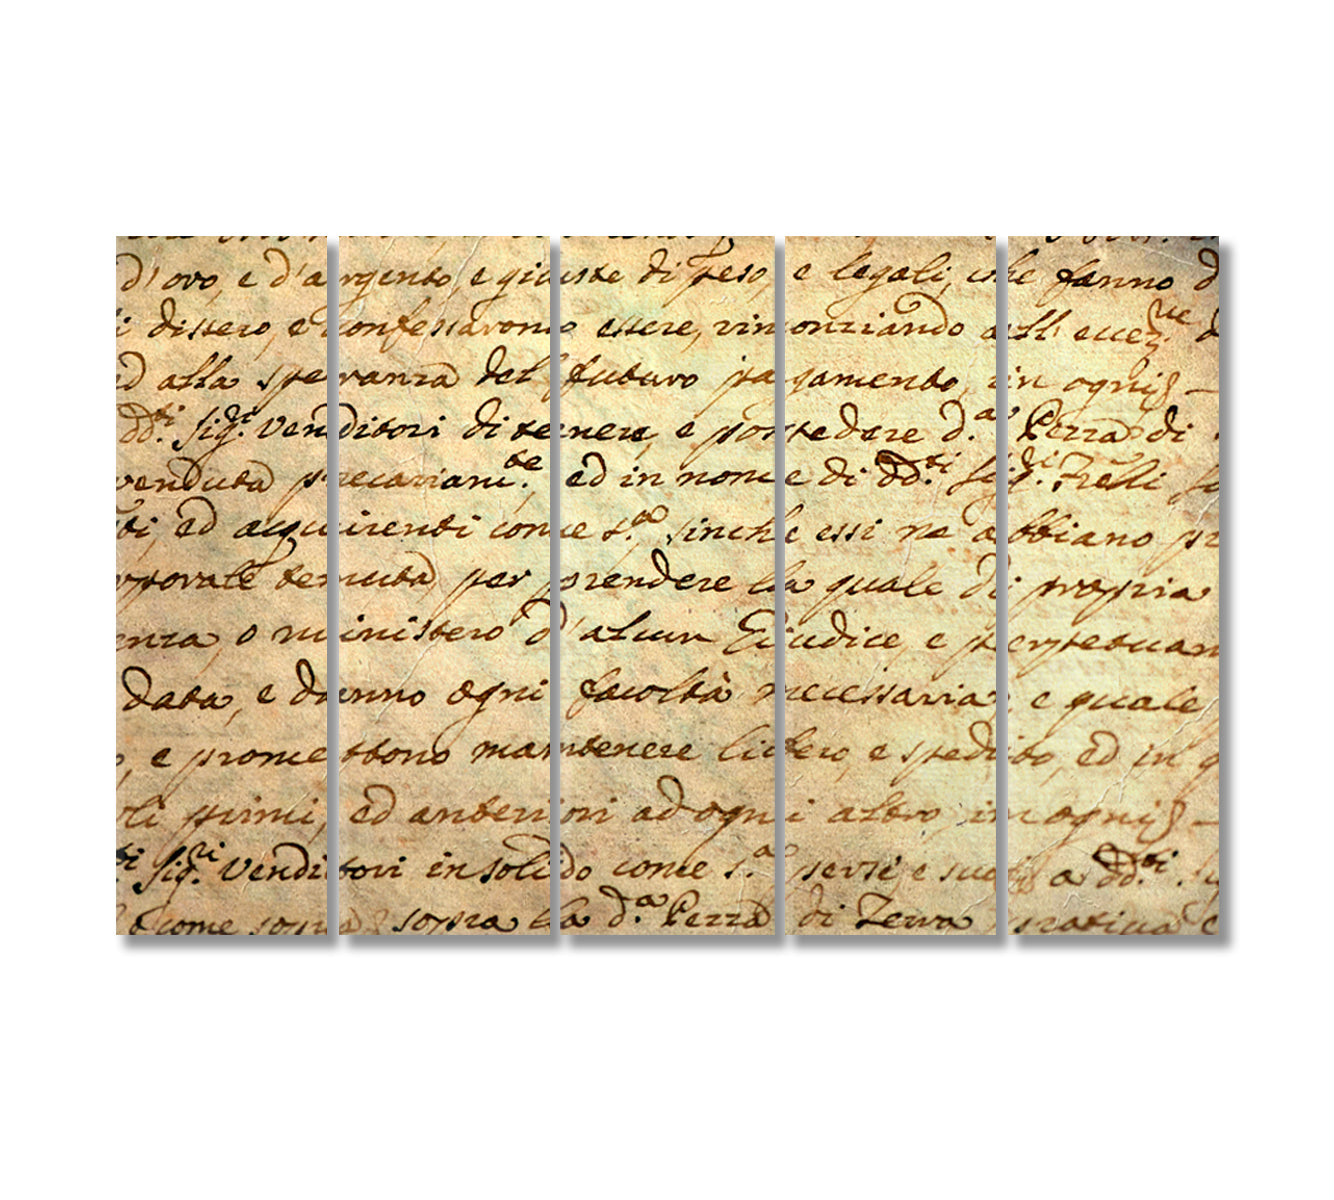 d'oro, e d'argento e giuste di peso, e legali, che fanno
dissero, e confessarono essere, rinonziando all' eccez.ne
ed alla speranza del futuro pagamento in ogni
dd.ti Sig.ri Venditori di tenere, e possedere d.a Pezza di
venduta precariam.te ed in nome di dd.ti Sig.ri Frelli
ti, ed acquirenti come s.a sinche essi ne abbiano
corporale tenuta per prendere la quale di propria
enza o ministero d'alcun Giudice, e perpetuam
data, e danno ogni facoltà necessaria, e quale
e promettono mantenere libero, e spedito, ed in
oli primi, ed anteriori ad ogni altro in ogni
ti Sig.ri Venditori in solido come s.a per se e suoi a dd.ti
come sopra sopra la d.a Pezza di Terra prativa